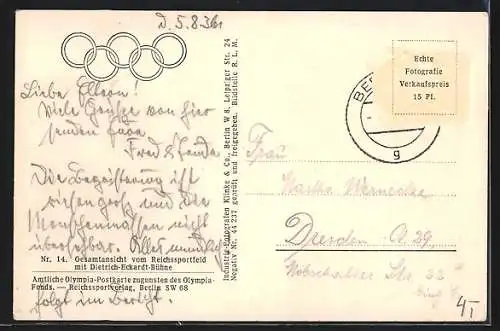 D. 5.8.36
Liebe Eltern!
Viele Grüße von hier
senden Euch
Fred & Trude
Die Begeisterung ist
riesengroß und die
Menschenmassen nicht
übersehbar. Alles
Nr. 14. Gesamtansicht vom Reichssportfeld
mit Dietrich-Eckardt-Bühne
Amtliche Olympia-Postkarte zugunsten des Olympia-
Fonds. — Reichssportverlag, Berlin SW 68
folgt im Bericht.
Industrie-Fotografen Klinke & Co., Berlin W 8, Leipziger Str. 24
Negativ Nr. 44 237 geprüft und freigegeben. Bildstelle R. L. M.
Echte
Fotografie
Verkaufspreis
15 Pf.
BER
g
Frau
Wernecke
Dresden A. 29
Str. 22
4,-